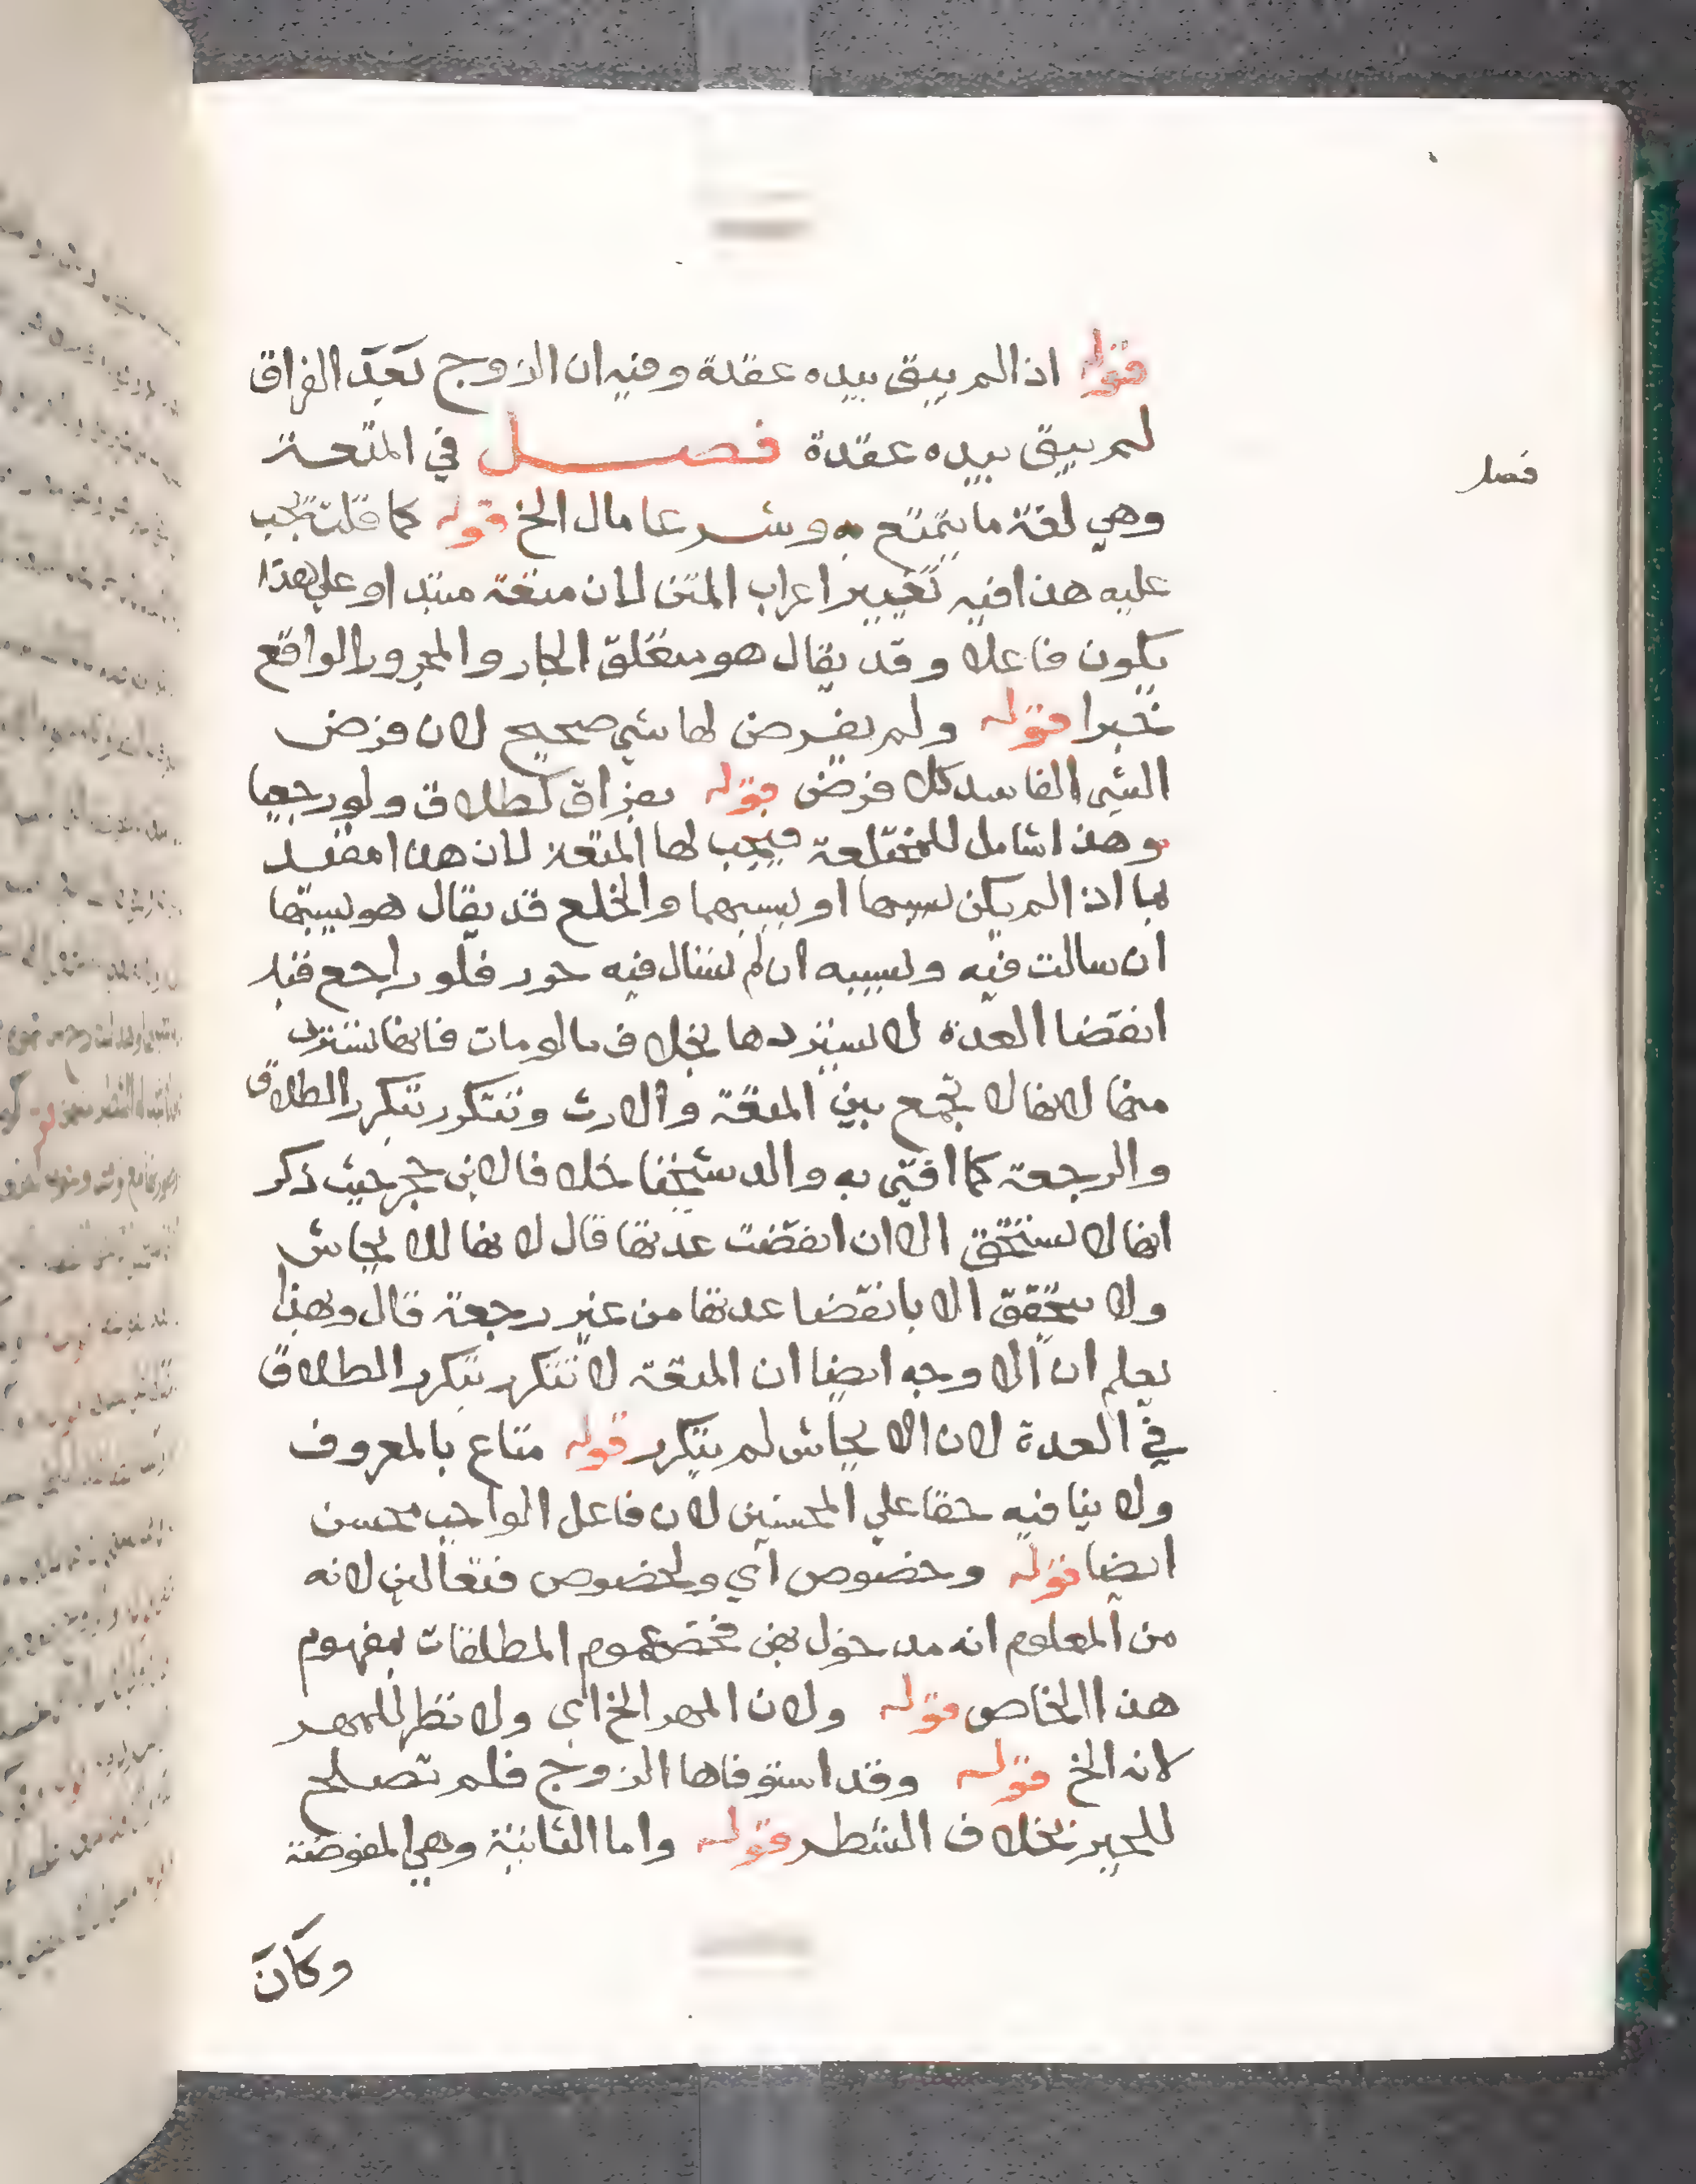 قوله اذا لم يبق بيده عقدة وفيه ان الزوج بَعدَ الفراق
لم يبق بيده عقدة فصل في المتعة
فصل
وهي لغة ما يتمتع به وشرعا مال الخ قوله كما قلت تجب
عليه هذا فيه تغيير اعراب المتن لان متعة مبتدا وعلي هذا
يكون فاعلا وقد يقال هو متعلق الجار والمجرور الواقع
خبرا قوله ولم يفرض لها شي صحيح لان فرض
الشي الفاسد كلا فرض قوله بفراق كطلاق ولو رجعيا
وهذا شامل للمختلعة فيجب لها المتعة لان هذا مقيد
بما اذا لم يكن بسببها او بسببهما والخلع قد يقال هو بسببها
ان سالت فيه وبسببه ان لم تسال فيه حور فلو راجع قبل
انقضا العدة لا يستردها بخلاف ما لو مات فانها تسترد
منها لانها لا تجمع بين المتعة والارث وتتكرر بتكرر الطلاق
والرجعة كما افتي به والد شيخنا خلافا لابن حجر حيث ذكر
انها لا تستحق الا ان انقضت عدتها قال لانها للايحاش
ولا يتحقق الا بانقضا عدتها من غير رجعة قال وبهذا
يعلم ان الاوجه ايضا ان المتعة لا تتكرر بتكرر الطلاق
في العدة لان الايحاش لم يتكرر قوله متاع بالمعروف
ولا ينافيه حقا علي المحسنين لان فاعل الواجب محسن
ايضا قوله وخصوص اي ولخصوص فتعالين لانه
من المعلوم انه مدخول بهن فخص عموم المطلقات بمفهوم
هذا الخاص قوله ولان المهر الخ اي ولا نظر للمهر
لانه الخ قوله وقد استوفاها الزوج فلم تصلح
للجبر بخلاف الشطر قوله واما الثانية وهي المفوضة
وكَانَ